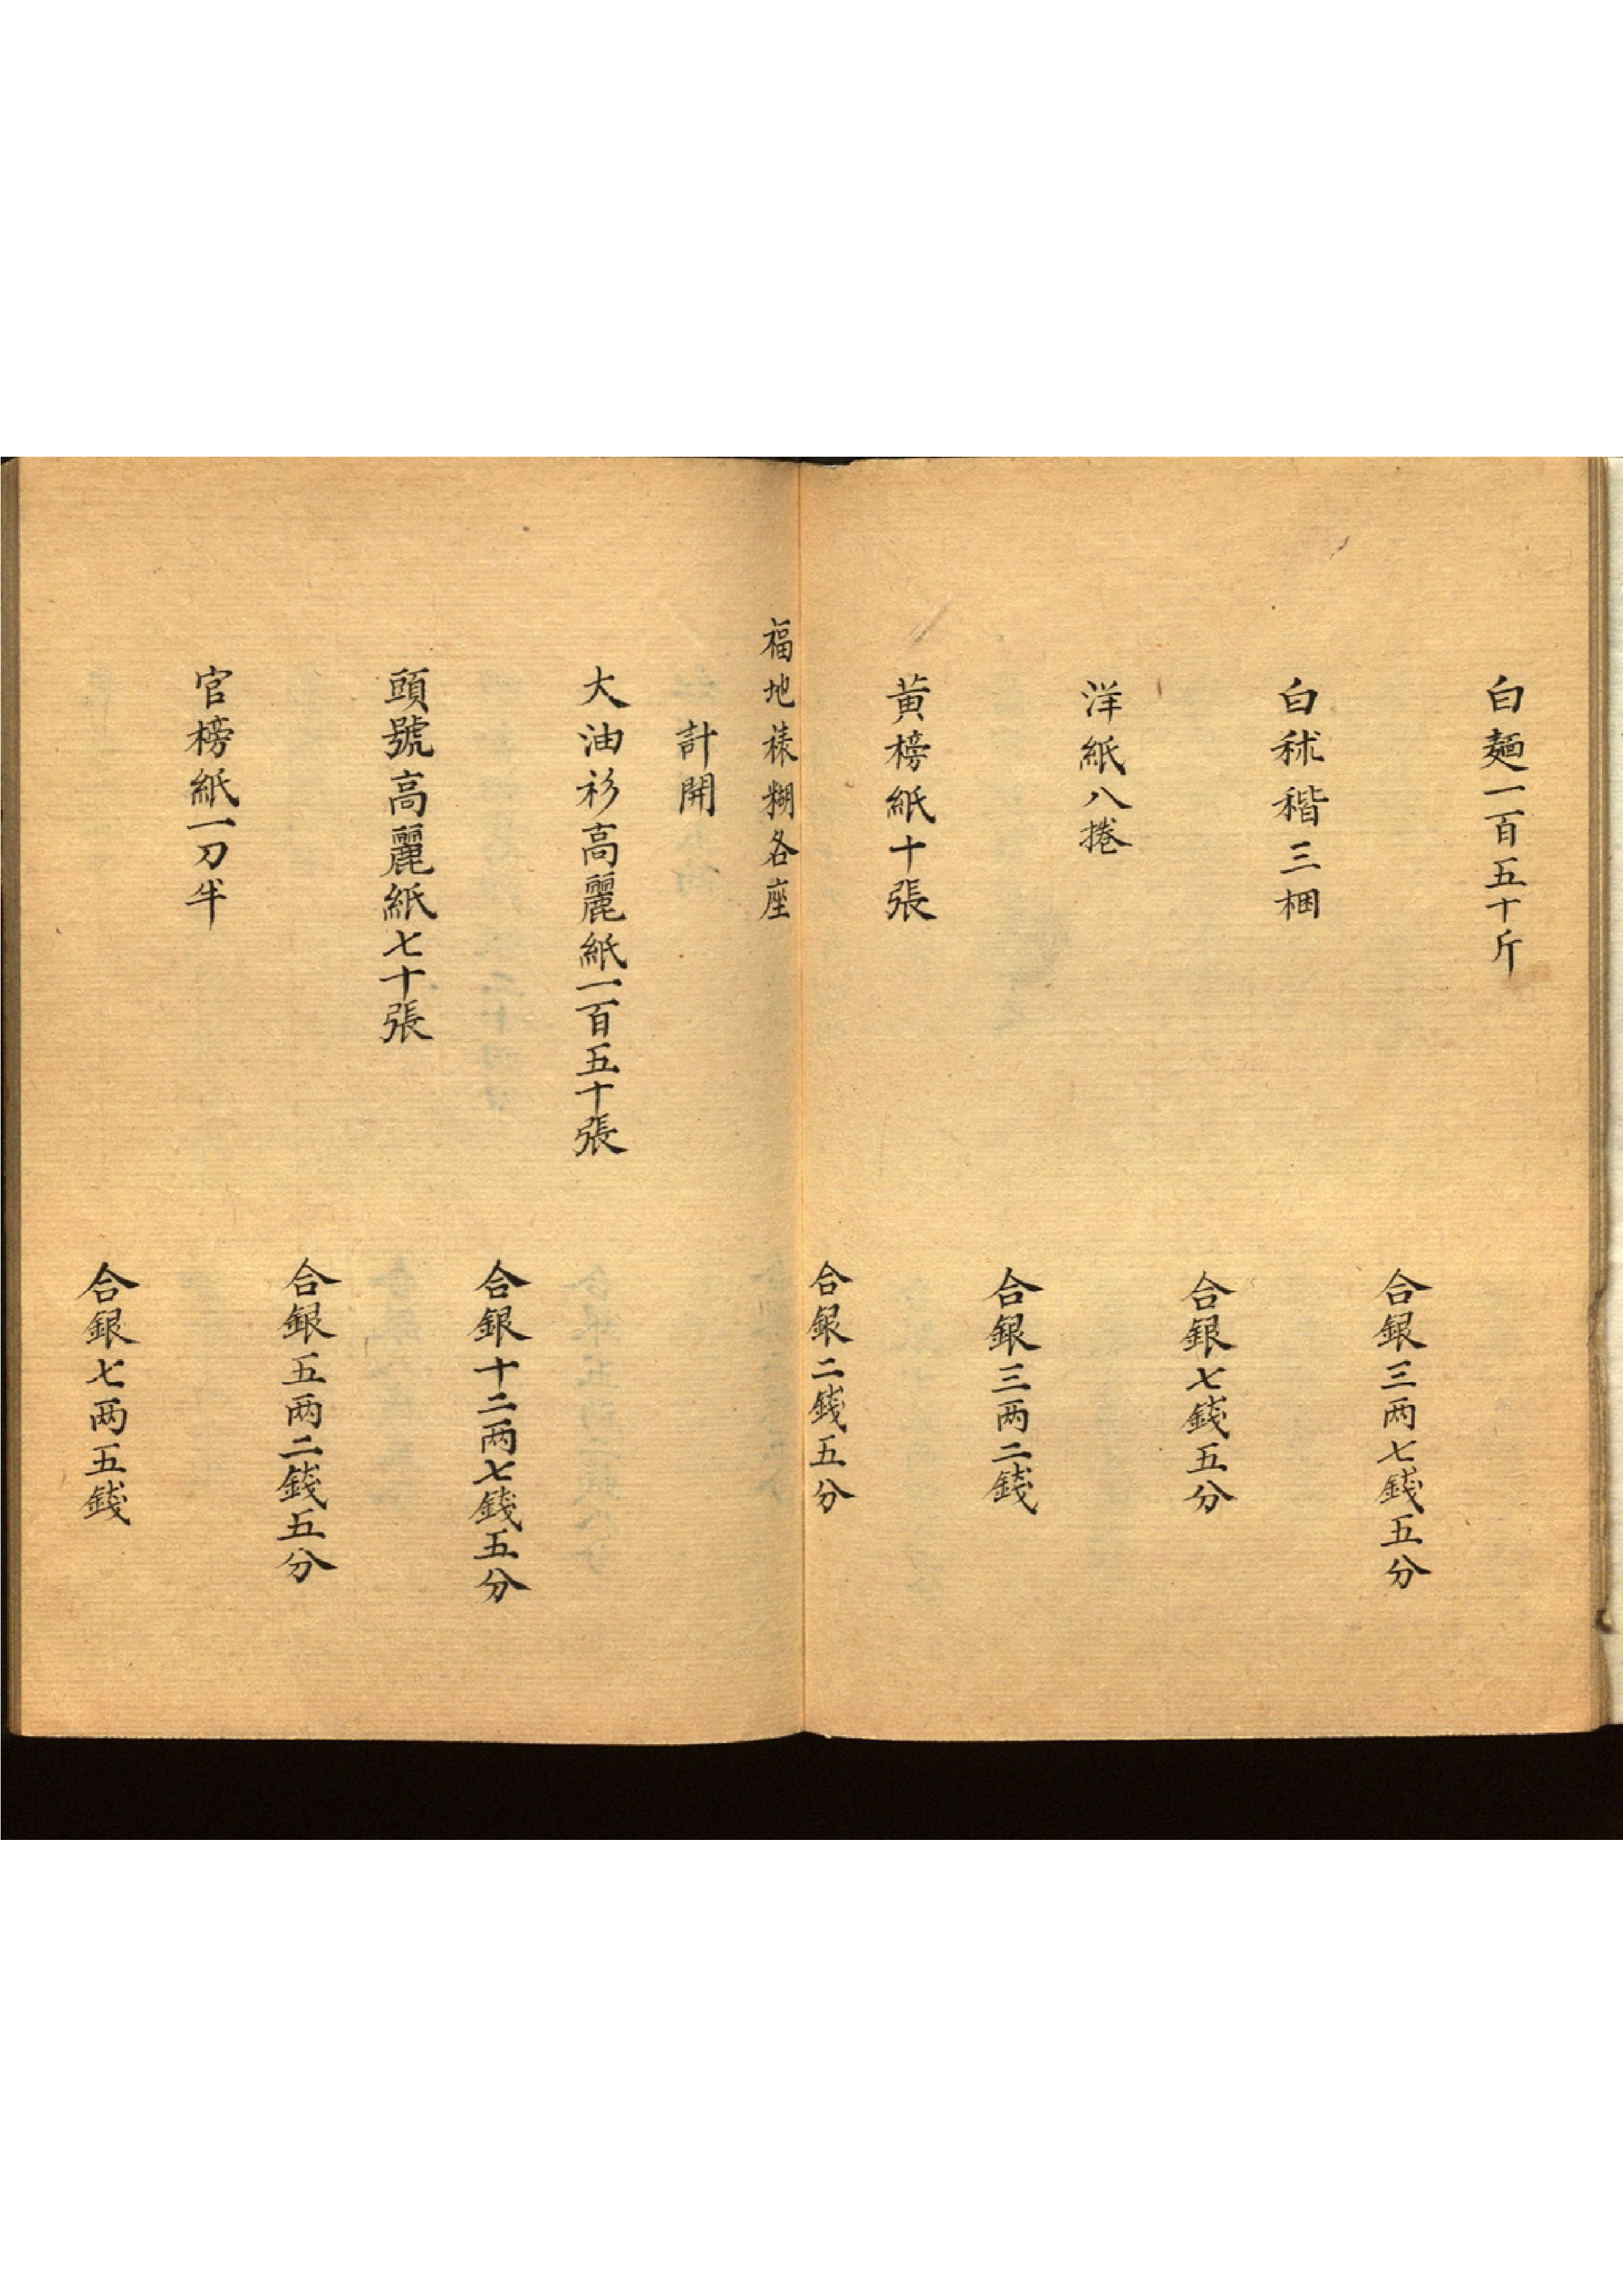 白麺一百五十斤
合銀三两七錢五分
白秫稭三梱
合銀七錢五分
洋紙八捲
合銀三两二錢
黃榜紙十張
合銀二錢五分
福地裱糊各座
計開
大油衫高麗紙一百五十張
合銀十二两七錢五分
頭號高麗紙七十張
合銀五两二錢五分
官榜紙一刀半
合銀七两五錢